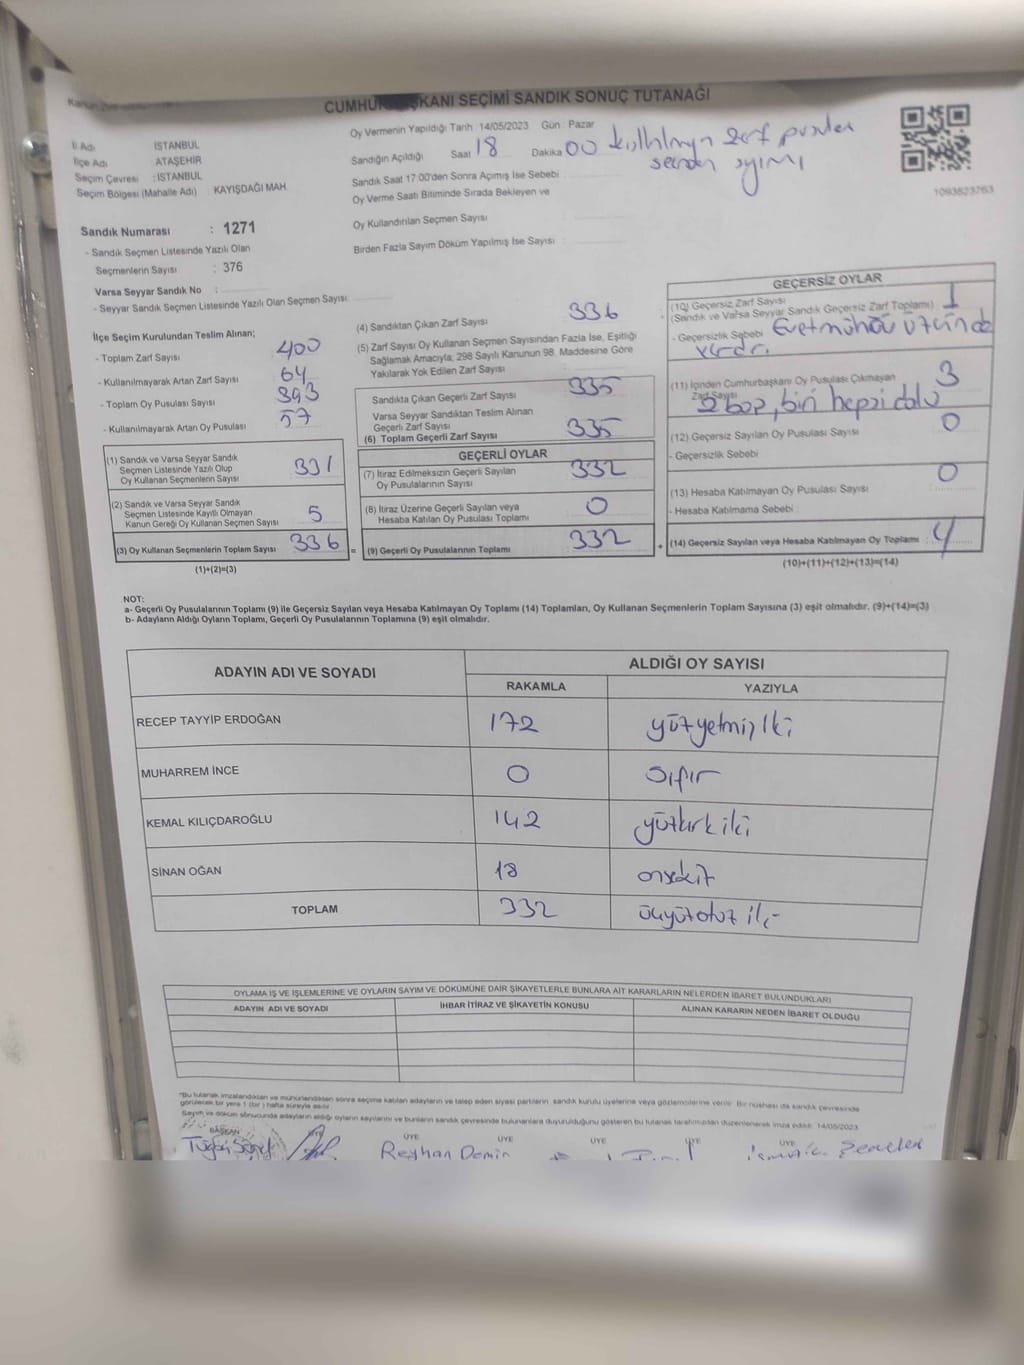 CUMHURBAŞKANI SEÇİMİ SANDIK SONUÇ TUTANAĞI
İl Adı İSTANBUL
İlçe Adı ATAŞEHİR
Seçim Çevresi : İSTANBUL
Seçim Bölgesi (Mahalle Adı) : KAYIŞDAĞI MAH
Oy Vermenin Yapıldığı Tarih 14/05/2023 Gün : Pazar
Sandığın Açıldığı Saat 18 Dakika 00
sayımı
Sandık Saat 17:00'den Sonra Açımış İse Sebebi :
Oy Verme Saati Bitiminde Sırada Bekleyen ve
Oy Kullandırılan Seçmen Sayısı :
Birden Fazla Sayım Döküm Yapılmış İse Sayısı :
1093823763
Sandık Numarası : 1271
- Sandık Seçmen Listesinde Yazılı Olan
Seçmenlerin Sayısı : 376
Varsa Seyyar Sandık No :
- Seyyar Sandık Seçmen Listesinde Yazılı Olan Seçmen Sayısı:
İlçe Seçim Kurulundan Teslim Alınan;
- Toplam Zarf Sayısı 400
- Kullanılmayarak Artan Zarf Sayısı 64
- Toplam Oy Pusulası Sayısı 393
- Kullanılmayarak Artan Oy Pusulası 57
(1) Sandık ve Varsa Seyyar Sandık
Seçmen Listesinde Yazılı Olup
Oy Kullanan Seçmenlerin Sayısı 331
(2) Sandık ve Varsa Seyyar Sandık
Seçmen Listesinde Kayıtlı Olmayan
Kanun Gereği Oy Kullanan Seçmen Sayısı 5
(3) Oy Kullanan Seçmenlerin Toplam Sayısı 336
(1)+(2)=(3)
(4) Sandıktan Çıkan Zarf Sayısı 336
(5) Zarf Sayısı Oy Kullanan Seçmen Sayısından Fazla İse, Eşitliği
Sağlamak Amacıyla, 298 Sayılı Kanunun 98. Maddesine Göre
Yakılarak Yok Edilen Zarf Sayısı :
Sandıkta Çıkan Geçerli Zarf Sayısı 335
Varsa Seyyar Sandıktan Teslim Alınan
Geçerli Zarf Sayısı
(6) Toplam Geçerli Zarf Sayısı 335
GEÇERLİ OYLAR
(7) İtiraz Edilmeksizin Geçerli Sayılan
Oy Pusulalarının Sayısı 332
(8) İtiraz Üzerine Geçerli Sayılan veya
Hesaba Katılan Oy Pusulası Toplamı 0
= (9) Geçerli Oy Pusulalarının Toplamı 332
GEÇERSİZ OYLAR
(10) Geçersiz Zarf Sayısı
(Sandık ve Varsa Seyyar Sandık Geçersiz Zarf Toplamı) 1
- Geçersizlik Sebebi Evet mührü üzerinde
vardır.
(11) İçinden Cumhurbaşkanı Oy Pusulası Çıkmayan
Zarf Sayısı 3
2 boş, biri hepsi dolu
(12) Geçersiz Sayılan Oy Pusulası Sayısı 0
- Geçersizlik Sebebi
(13) Hesaba Katılmayan Oy Pusulası Sayısı 0
- Hesaba Katılmama Sebebi
+ (14) Geçersiz Sayılan veya Hesaba Katılmayan Oy Toplamı : 4
(10)+(11)+(12)+(13)=(14)
NOT:
a- Geçerli Oy Pusulalarının Toplamı (9) ile Geçersiz Sayılan veya Hesaba Katılmayan Oy Toplamı (14) Toplamları, Oy Kullanan Seçmenlerin Toplam Sayısına (3) eşit olmalıdır. (9)+(14)=(3)
b- Adayların Aldığı Oyların Toplamı, Geçerli Oy Pusulalarının Toplamına (9) eşit olmalıdır.
ADAYIN ADI VE SOYADI ALDIĞI OY SAYISI
RAKAMLA YAZIYLA
RECEP TAYYİP ERDOĞAN 172 yüzyetmiş iki
MUHARREM İNCE 0 Sıfır
KEMAL KILIÇDAROĞLU 142 yüzkırk iki
SİNAN OĞAN 18 onsekiz
TOPLAM 332 üçyüzotuz iki
OYLAMA İŞ VE İŞLEMLERİNE VE OYLARIN SAYIM VE DÖKÜMÜNE DAİR ŞİKAYETLERLE BUNLARA AİT KARARLARIN NELERDEN İBARET BULUNDUKLARI
ADAYIN ADI VE SOYADI İHBAR İTİRAZ VE ŞİKAYETİN KONUSU ALINAN KARARIN NEDEN İBARET OLDUĞU
*Bu tutanak imzalandıktan ve mühürlendikten sonra seçime katılan adayların ve talep eden siyasi partilerin sandık kurulu üyelerine veya gözlemcilerine verilir. Bir nüshası da sandık çevresinde
görülecek bir yere 1 (bir) hafta süreyle asılır.
Sayım ve döküm sonucunda adayların aldığı oyların sayılarını ve bunların sandık çevresinde bulunanlara duyurulduğunu gösteren bu tutanak tarafımızdan düzenlenerek imza edildi. 14/05/2023
BAŞKAN ÜYE ÜYE ÜYE ÜYE ÜYE
Reyhan Demin